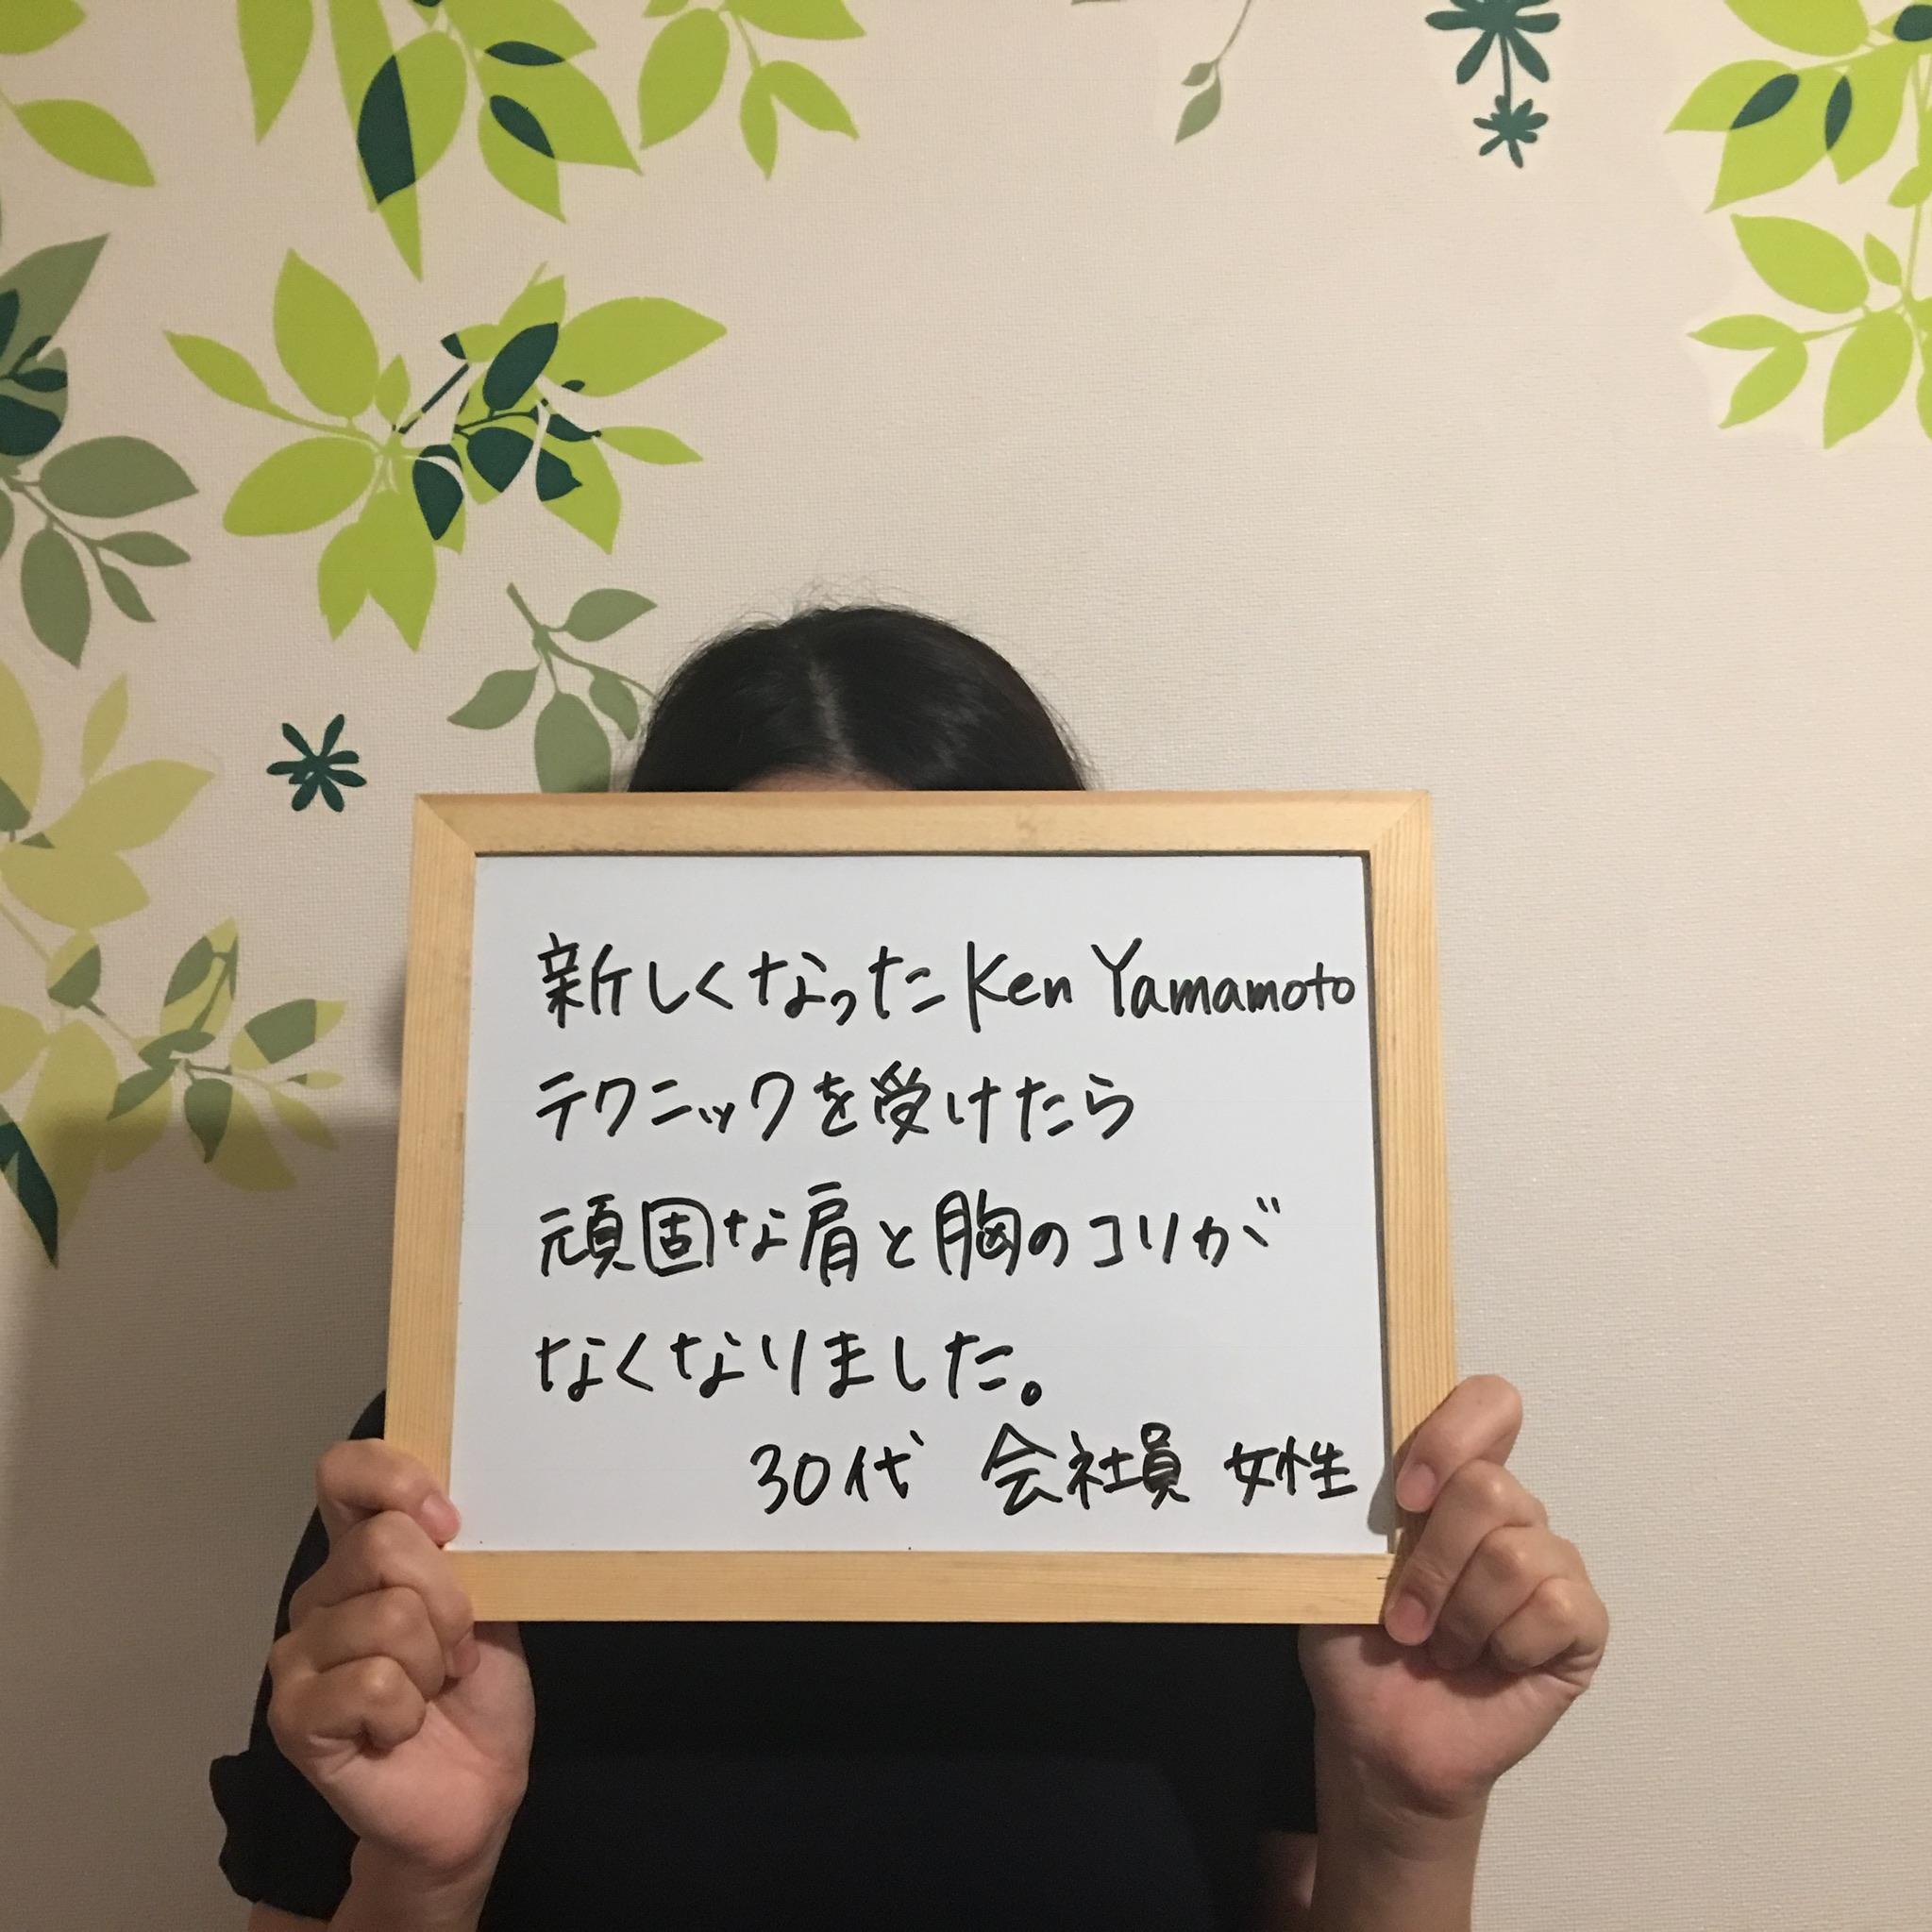 新しくなったKen Yamamoto
テクニックを受けたら
頑固な肩と胸のコリが
なくなりました。
30代 会社員 女性